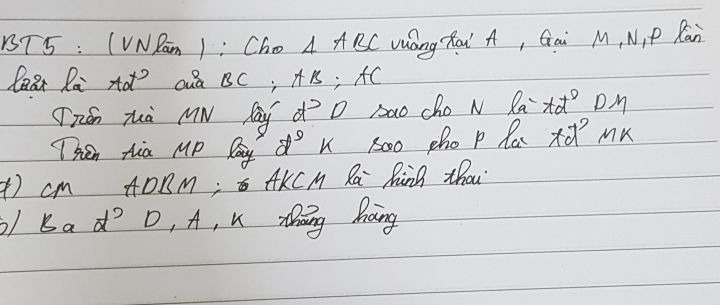 BT5 : (VN làm) : Cho Δ ABC vuông tại A, Gọi M, N, P lần
lượt là tđ° của BC ; AB ; AC
Trên tia MN lấy đ° D sao cho N là tđ° DM
Trên tia MP lấy đ° K sao cho P là tđ° MK
a) CM ADBM ; AKCM là hình thoi
b) Ba đ° D, A, K thẳng hàng